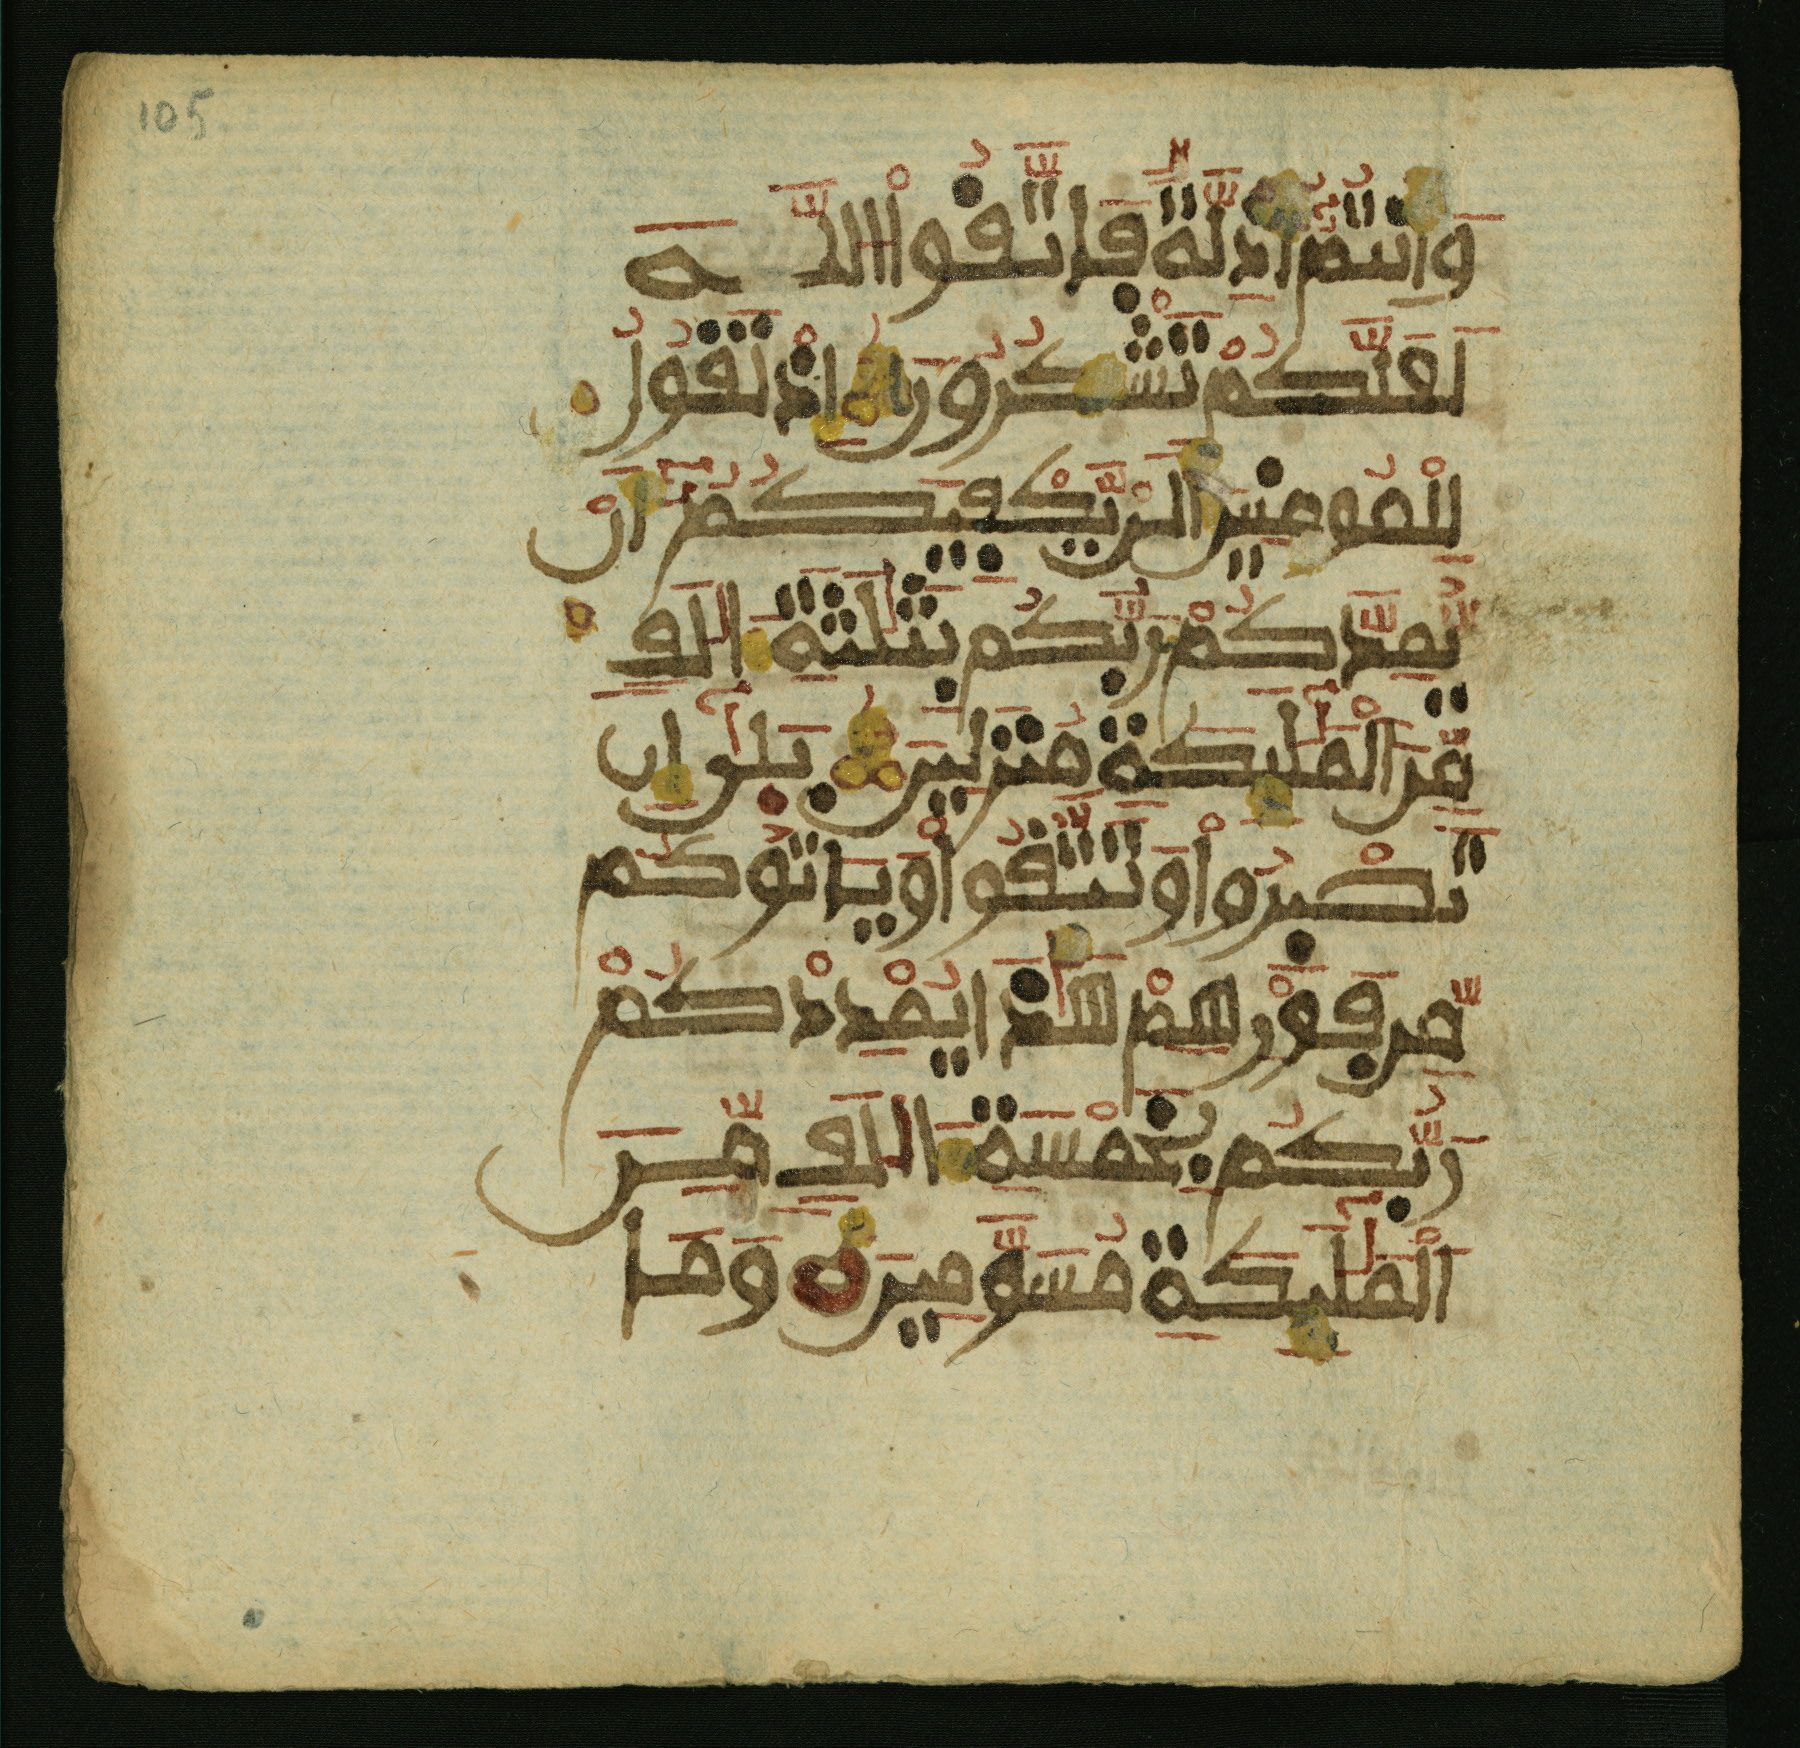 105
وَأَنتُمُۥٓ أَذِلَّةٌ فَاتَّقُواْ اللَّهَ
لَعَلَّكُمْ تَشْكُرُونَ إِذْ تَقُولُ
لِلْمُومِنِينَ أَلَنْ يَّكْفِيَكُمُۥٓ أَنْ
يُّمِدَّكُمْ رَبُّكُم بِثَلَٰثَةِ ءَالَٰفٍ
مِّنَ الْمَلَٰٓئِكَةِ مُنزَلِينَ بَلَىٰٓ إِن
تَصْبِرُواْ وَتَتَّقُواْ وَيَاتُوكُم
مِّن فَوْرِهِمْ هَٰذَا يُمْدِدْكُمْ
رَبُّكُم بِخَمْسَةِ ءَالَٰفٍ مِّنَ
الْمَلَٰٓئِكَةِ مُسَوَّمِينَ وَمَا